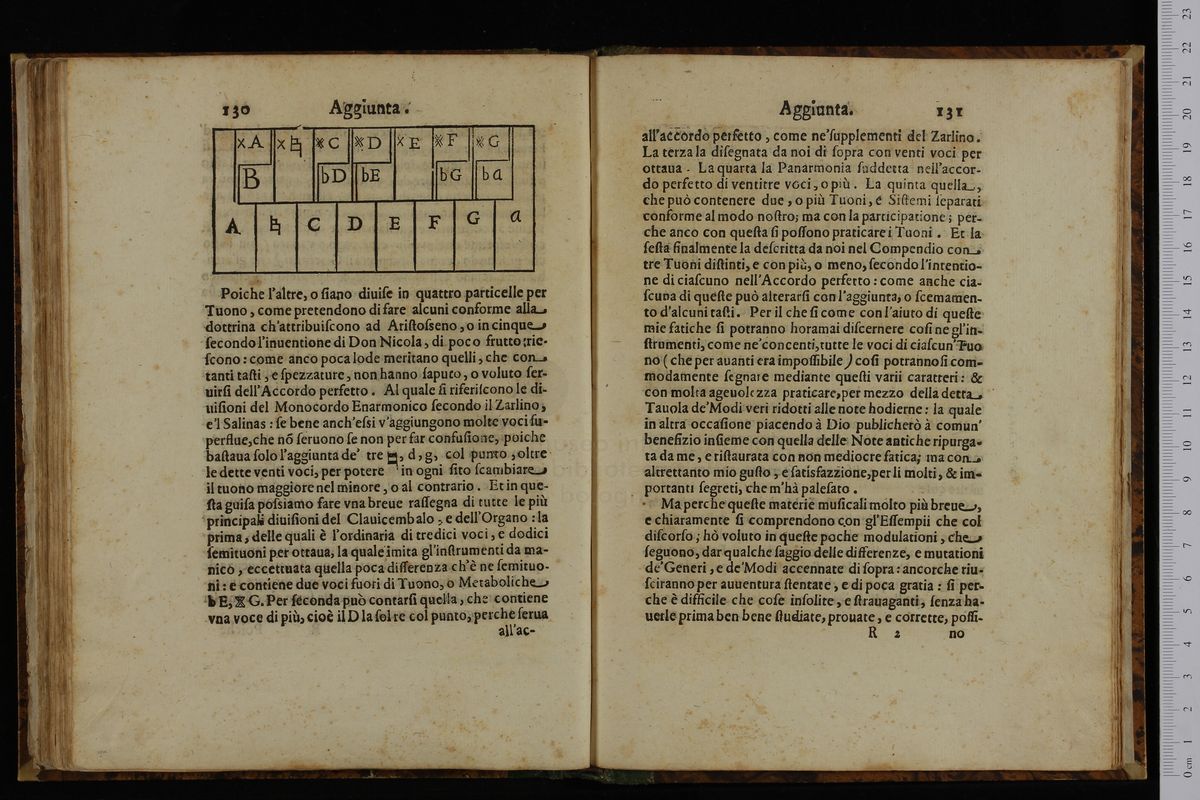 130 Aggiunta.
xA x♮ 𝄪C 𝄪D xE 𝄪F 𝄪G
B bD bE bG ba
A ♮ C D E F G a
Poiche l'altre, o ſiano diuiſe in quattro particelle per
Tuono, come pretendono di fare alcuni conforme alla
dottrina ch'attribuiſcono ad Ariſtoſseno, o in cinque
ſecondo l'inuentione di Don Nicola, di poco frutto rie-
ſcono: come anco poca lode meritano quelli, che con
tanti taſti, e ſpezzature, non hanno ſaputo, o voluto ſer-
uirſi dell'Accordo perfetto. Al quale ſi riferiſcono le di-
uiſioni del Monocordo Enarmonico ſecondo il Zarlino,
e'l Salinas: ſe bene anch'eſsi v'aggiungono molte voci ſu-
perflue, che nõ ſeruono ſe non per far confuſione, poiche
baſtaua ſolo l'aggiunta de' tre ♮, d, g, col punto, oltre
le dette venti voci, per potere in ogni ſito ſcambiare
il tuono maggiore nel minore, o al contrario. Et in que-
ſta guiſa poſsiamo fare vna breue raſſegna di tutte le più
principali diuiſioni del Clauicembalo, e dell'Organo: la
prima, delle quali è l'ordinaria di tredici voci, e dodici
ſemituoni per ottaua, la quale imita gl'inſtrumenti da ma-
nico, eccettuata quella poca differenza ch'è ne ſemituo-
ni: e contiene due voci fuori di Tuono, o Metaboliche
b E, 𝄪 G. Per ſeconda può contarſi quella, che contiene
vna voce di più, cioè il D la ſol re col punto, perche ſerua
all'ac-
Aggiunta. 131
all'accordo perfetto, come ne'ſupplementi del Zarlino.
La terza la diſegnata da noi di ſopra con venti voci per
ottaua. La quarta la Panarmonia ſuddetta nell'accor-
do perfetto di ventitre voci, o più. La quinta quella,
che può contenere due, o più Tuoni, e Siſtemi ſeparati
conforme al modo noſtro; ma con la participatione; per-
che anco con queſta ſi poſſono praticare i Tuoni. Et la
ſeſta finalmente la deſcritta da noi nel Compendio con
tre Tuoni diſtinti, e con più, o meno, ſecondo l'intentio-
ne di ciaſcuno nell'Accordo perfetto: come anche cia-
ſcuna di queſte può alterarſi con l'aggiunta, o ſcemamen-
to d'alcuni taſti. Per il che ſi come con l'aiuto di queſte
mie fatiche ſi potranno horamai diſcernere coſi ne gl'in-
ſtrumenti, come ne'concenti, tutte le voci di ciaſcun'Tuo
no (che per auanti era impoſſibile) coſi potrannoſi com-
modamente ſegnare mediante queſti varii caratteri: &
con molta ageuolezza praticare, per mezzo della detta
Tauola de'Modi veri ridotti alle note hodierne: la quale
in altra occaſione piacendo à Dio publicherò à comun'
benefizio inſieme con quella delle Note antiche ripurga-
ta da me, e riſtaurata con non mediocre fatica; ma con
altrettanto mio guſto, e ſatisfazzione, per li molti, & im-
portanti ſegreti, che m'hà paleſato.
Ma perche queſte materie muſicali molto più breue,
e chiaramente ſi comprendono con gl'Eſſempii che col
diſcorſo; hò voluto in queſte poche modulationi, che
ſeguono, dar qualche ſaggio delle differenze, e mutationi
de'Generi, e de'Modi accennate di ſopra: ancorche riu-
ſciranno per auuentura ſtentate, e di poca gratia: ſi per-
che è difficile che coſe inſolite, e ſtrauaganti, ſenza ha-
uerle prima ben bene ſtudiate, prouate, e corrette, poſſi-
R 2 no